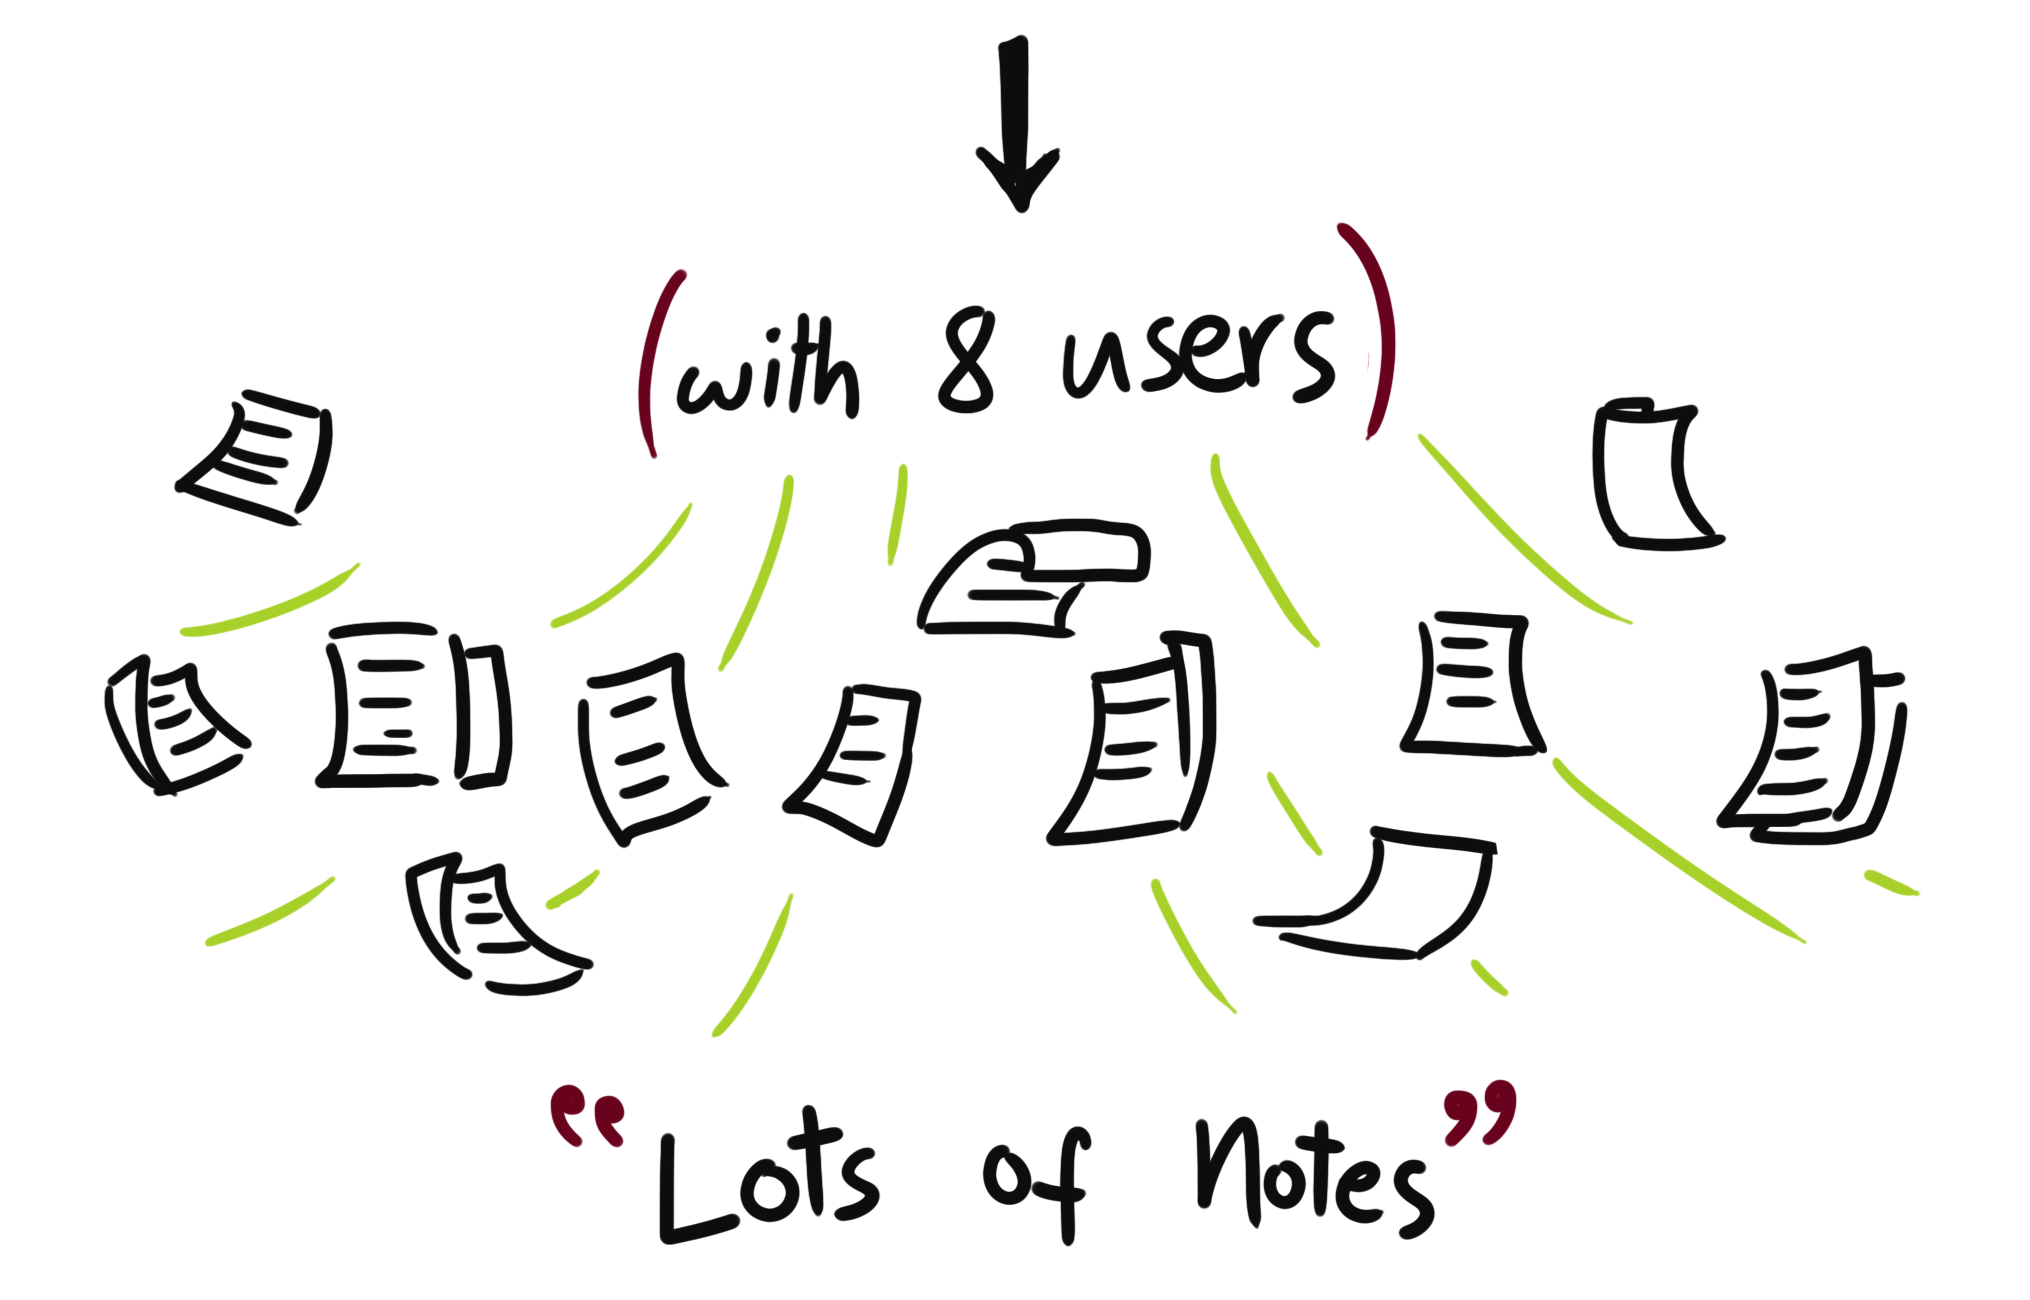 (with 8 users)
“Lots of Notes”